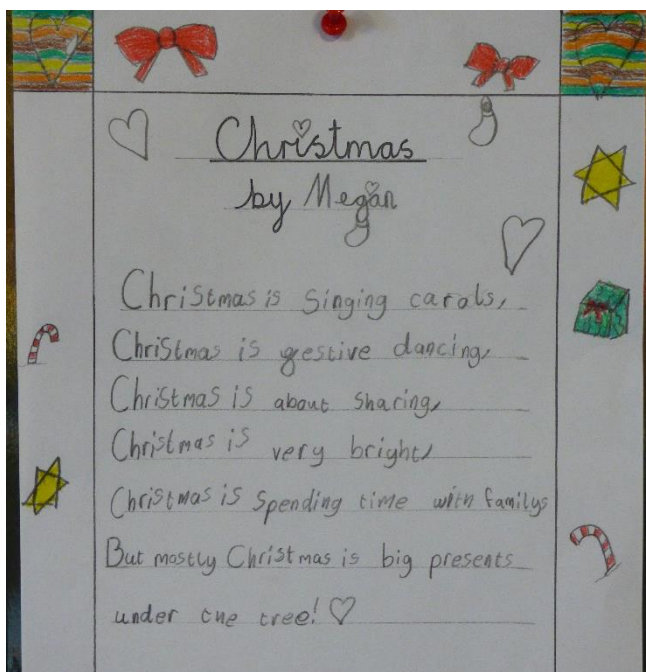 Christmas
by Megan
Christmas is singing carols,
Christmas is gestive dancing,
Christmas is about sharing,
Christmas is very bright,
Christmas is spending time with familys
But mostly Christmas is big presents
under the tree!